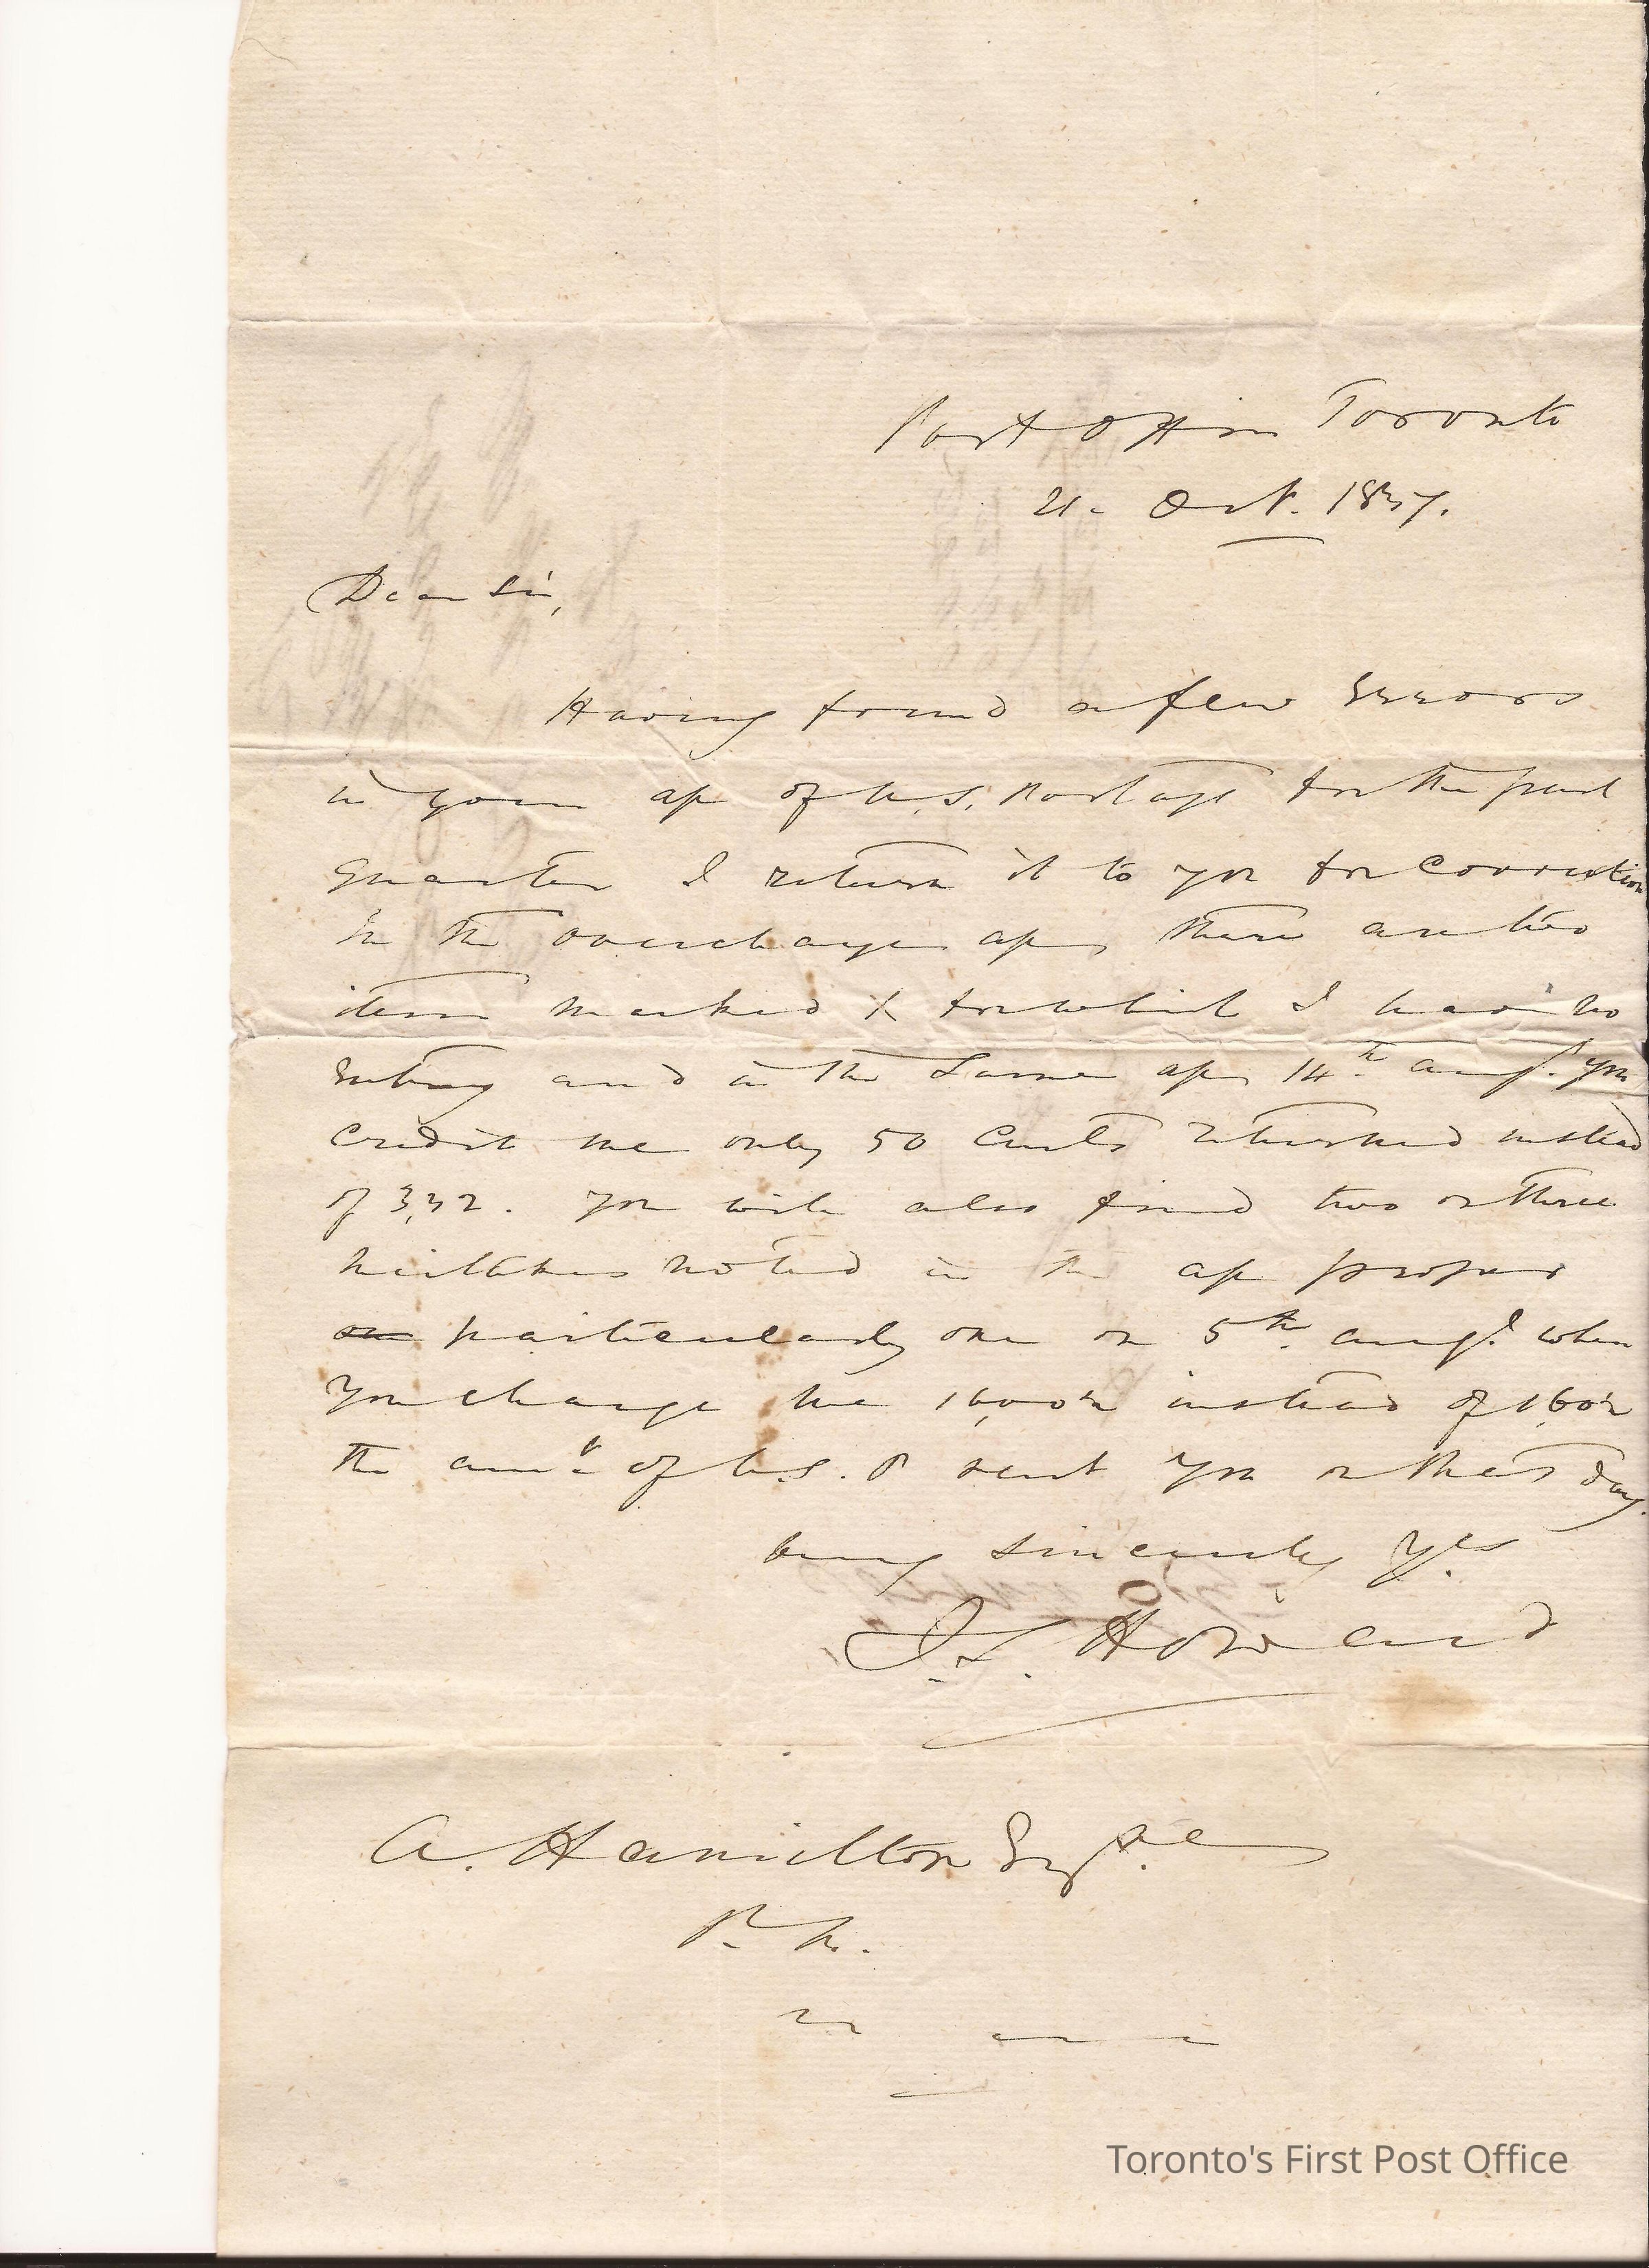 Post Office Toronto
21. Oct. 1837.
Dear Sir,
Having found a few Errors
in your a/c of U.S. Postage for the past
Quarter I return it to you for Correction
In the overcharge a/c there are two
items marked X for which I have no
Entry and in the Same a/c 14th. Augt. you
Credit me only 50 Cents returned instead
of 3,32. you will also find two or three
mistakes noted in the a/c proper
particularly one on 5th. Augt. when
you charge me 16,00½ instead of 1,60½
the amt. of U.S. P sent you on that day.
being sincerely Yrs.
J.S. Howard
A. Hamilton Esqre.
P. M.
Toronto's First Post Office